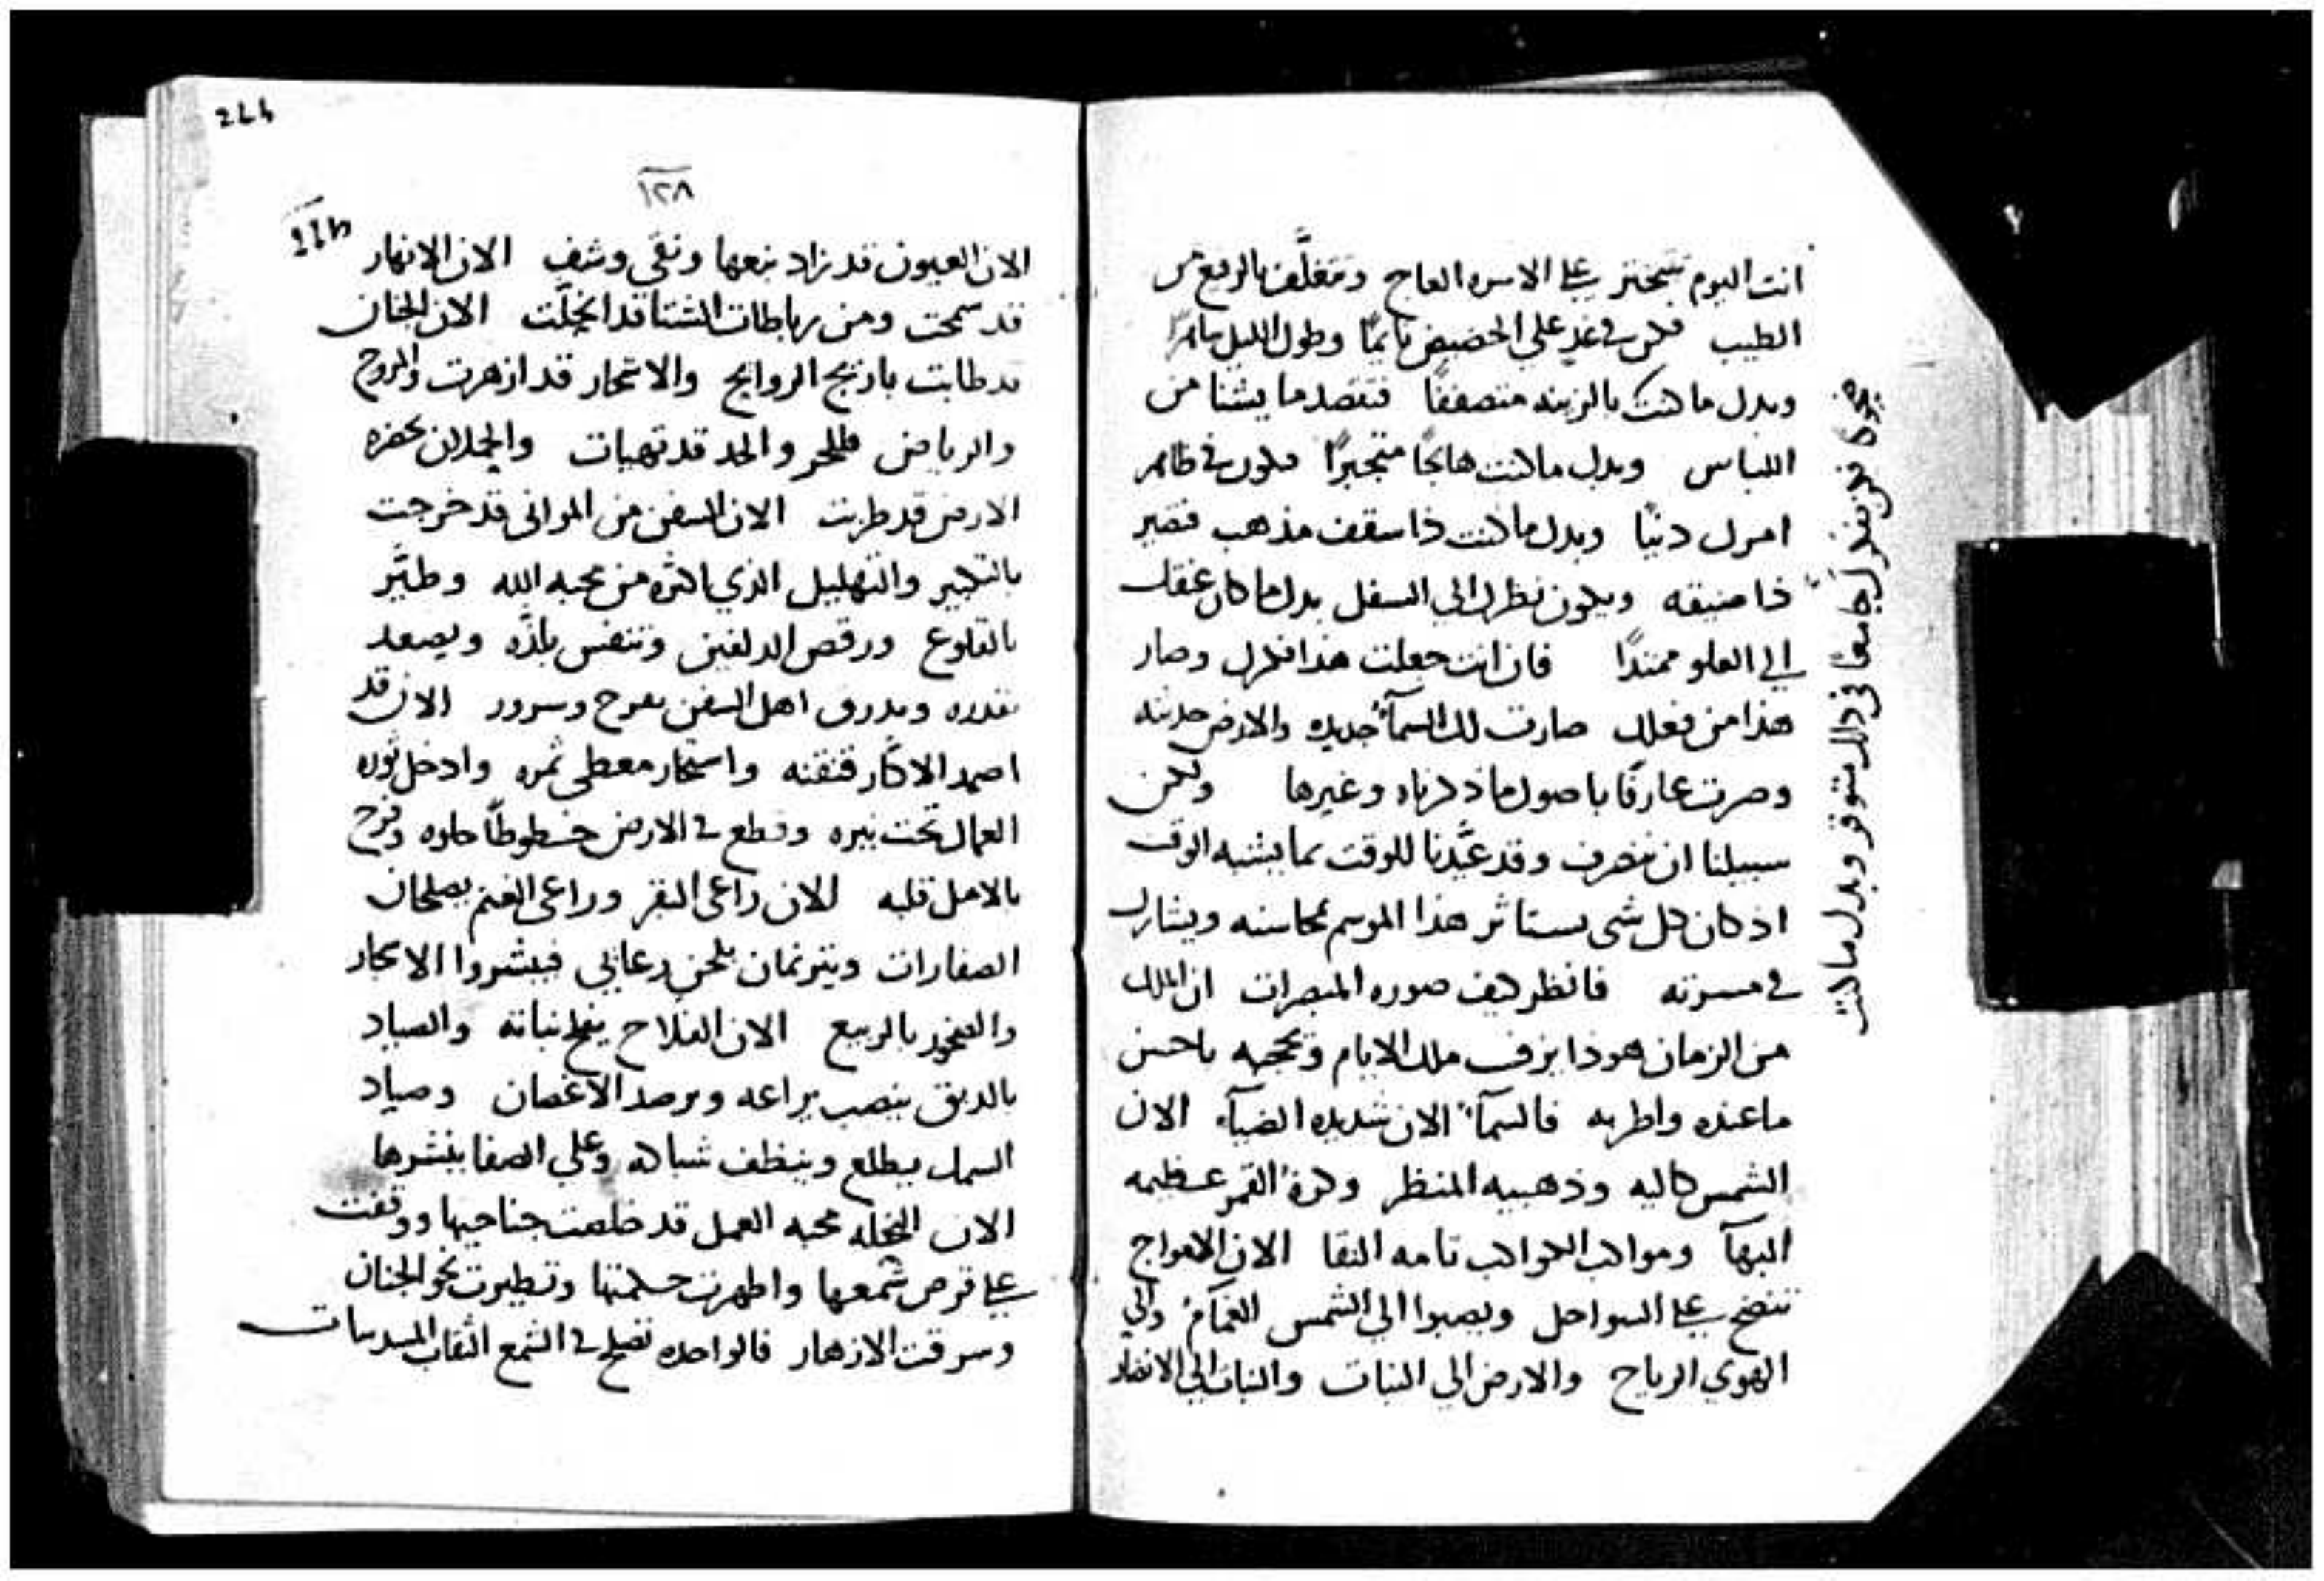 انت اليوم تتبختر على الاسره العاج وتتغلَّف بالرفيع من
الطيب فكن في غدٍ على الحضيض نايمًا وطول الليل ساهرًا
وبدل ما كنت بالزينه متصففًا فتقصد ما يشنا من
اللباس وبدل ما كنت هايجًا متجبرًا فكون في ظاهر
امرك دنيًا وبدل ما كنت ذا سقف مذهب فتصير
ذا ضيقه ويكون نظرك الي السفل بدل ما كان عنقك
الي العلو ممتدًا فان انت جعلت هذا فكرك وصار
هذا من فعلك صارت لك السمآء جديده والارض حديثه
وصرت عارفًا باصول ما ذكرناه وغيرها ولكن
سبيلنا ان نخرف وقد عيَّدنا للوقت بما يشبه الوقت
اذ كان كل شي يستاثر هذا الموسم بمحاسنه ويشارك
في مسرته فانظر كيف صوره المبصرات ان الملك
من الزمان هوذا يزف ملك الايام وتحجبه باحسن
ما عنده واطربه فالسمآء الان شديده الضيآء الان
الشمس عاليه وذهبيه المنظر وكرة القمر عظيمه
البهآ ومواكب الكواكب تامه النقا الان الامواج
تنضح على السواحل ويصبوا الي الشمس الغمام والي
الهوي الرياح والارض الي النبات والنبات الي الابصار
ضحوكًا فكن بفكرك جامعًا في ذلك متوقر وبدل ما كنت
244
١٢٨
الان العيون قد زاد نبعها ونقي وشف الان الانهار
قد سمحت ومن رباطات الشتا قد انحلَّت الان الجنان
قد طابت باريج الروايح والاشجار قد ازهرت والمروج
والرياض للحر والحد قد تهيات والحملان بخضره
الارض قد طربت الان السفن من المواني قد خرجت
بالتكبير والتهليل الذي اكثره من محبه الله وطيَّر
بالقلوع ورقص الدلفين وتنفس بلذَّه ويصعد
بقدره ويدرق اهل السفن بفرح وسرور الان قد
اصمد الاكَّار فتقنه واستخار معطي ثمره وادخل ثوره
العمال تحت نيره وقطع في الارض خطوطًا حلوه وفرح
بالامل قلبه الان راعي البقر وراعي الغنم يصلحان
الصفارات ويترنمان بلحن رعايي فيبشروا الاشجار
والصخور بالربيع الان الفلاح يفلح نباته والصياد
بالدبق ينصب يراعه ويرصد الاغصان وصياد
السمك يطلع وينظف شباكه وعلي الصفا ينشرها
الان النحله محبه العمل قد خلصت جناحيها ووقفت
على قرص شمعها واظهرت حكمتها وتطيرت نحو الجنان
وسرقت الازهار فالواحده تصلح في الشمع اثقاب المسدسات